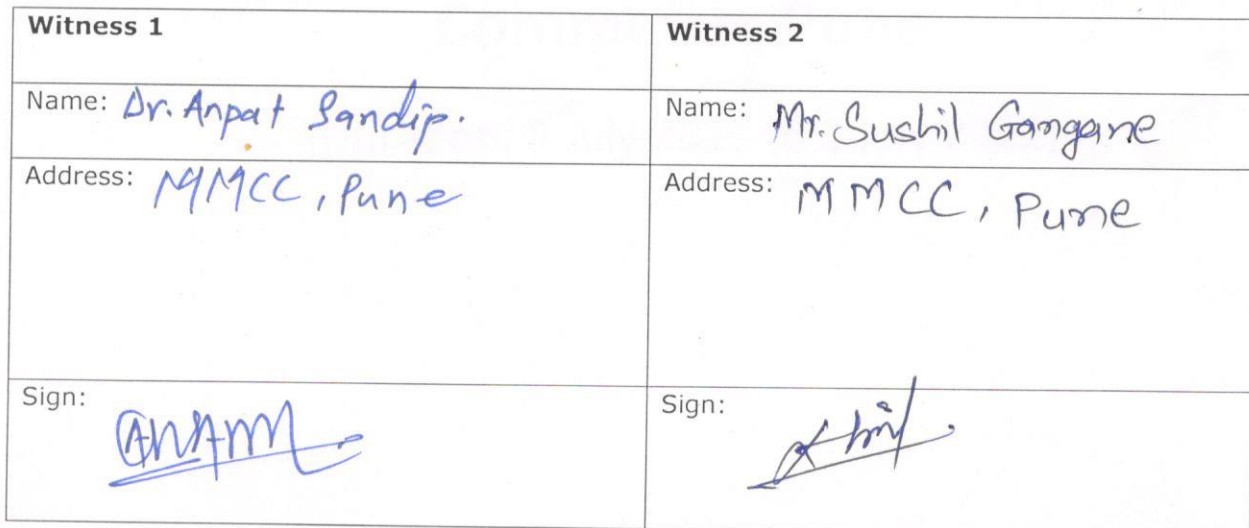 Witness 1
Witness 2
Name: Dr. Anpat Sandip.
Name: Mr. Sushil Gangane
Address: MMCC, Pune
Address: MMCC, Pune
Sign:
Sign: